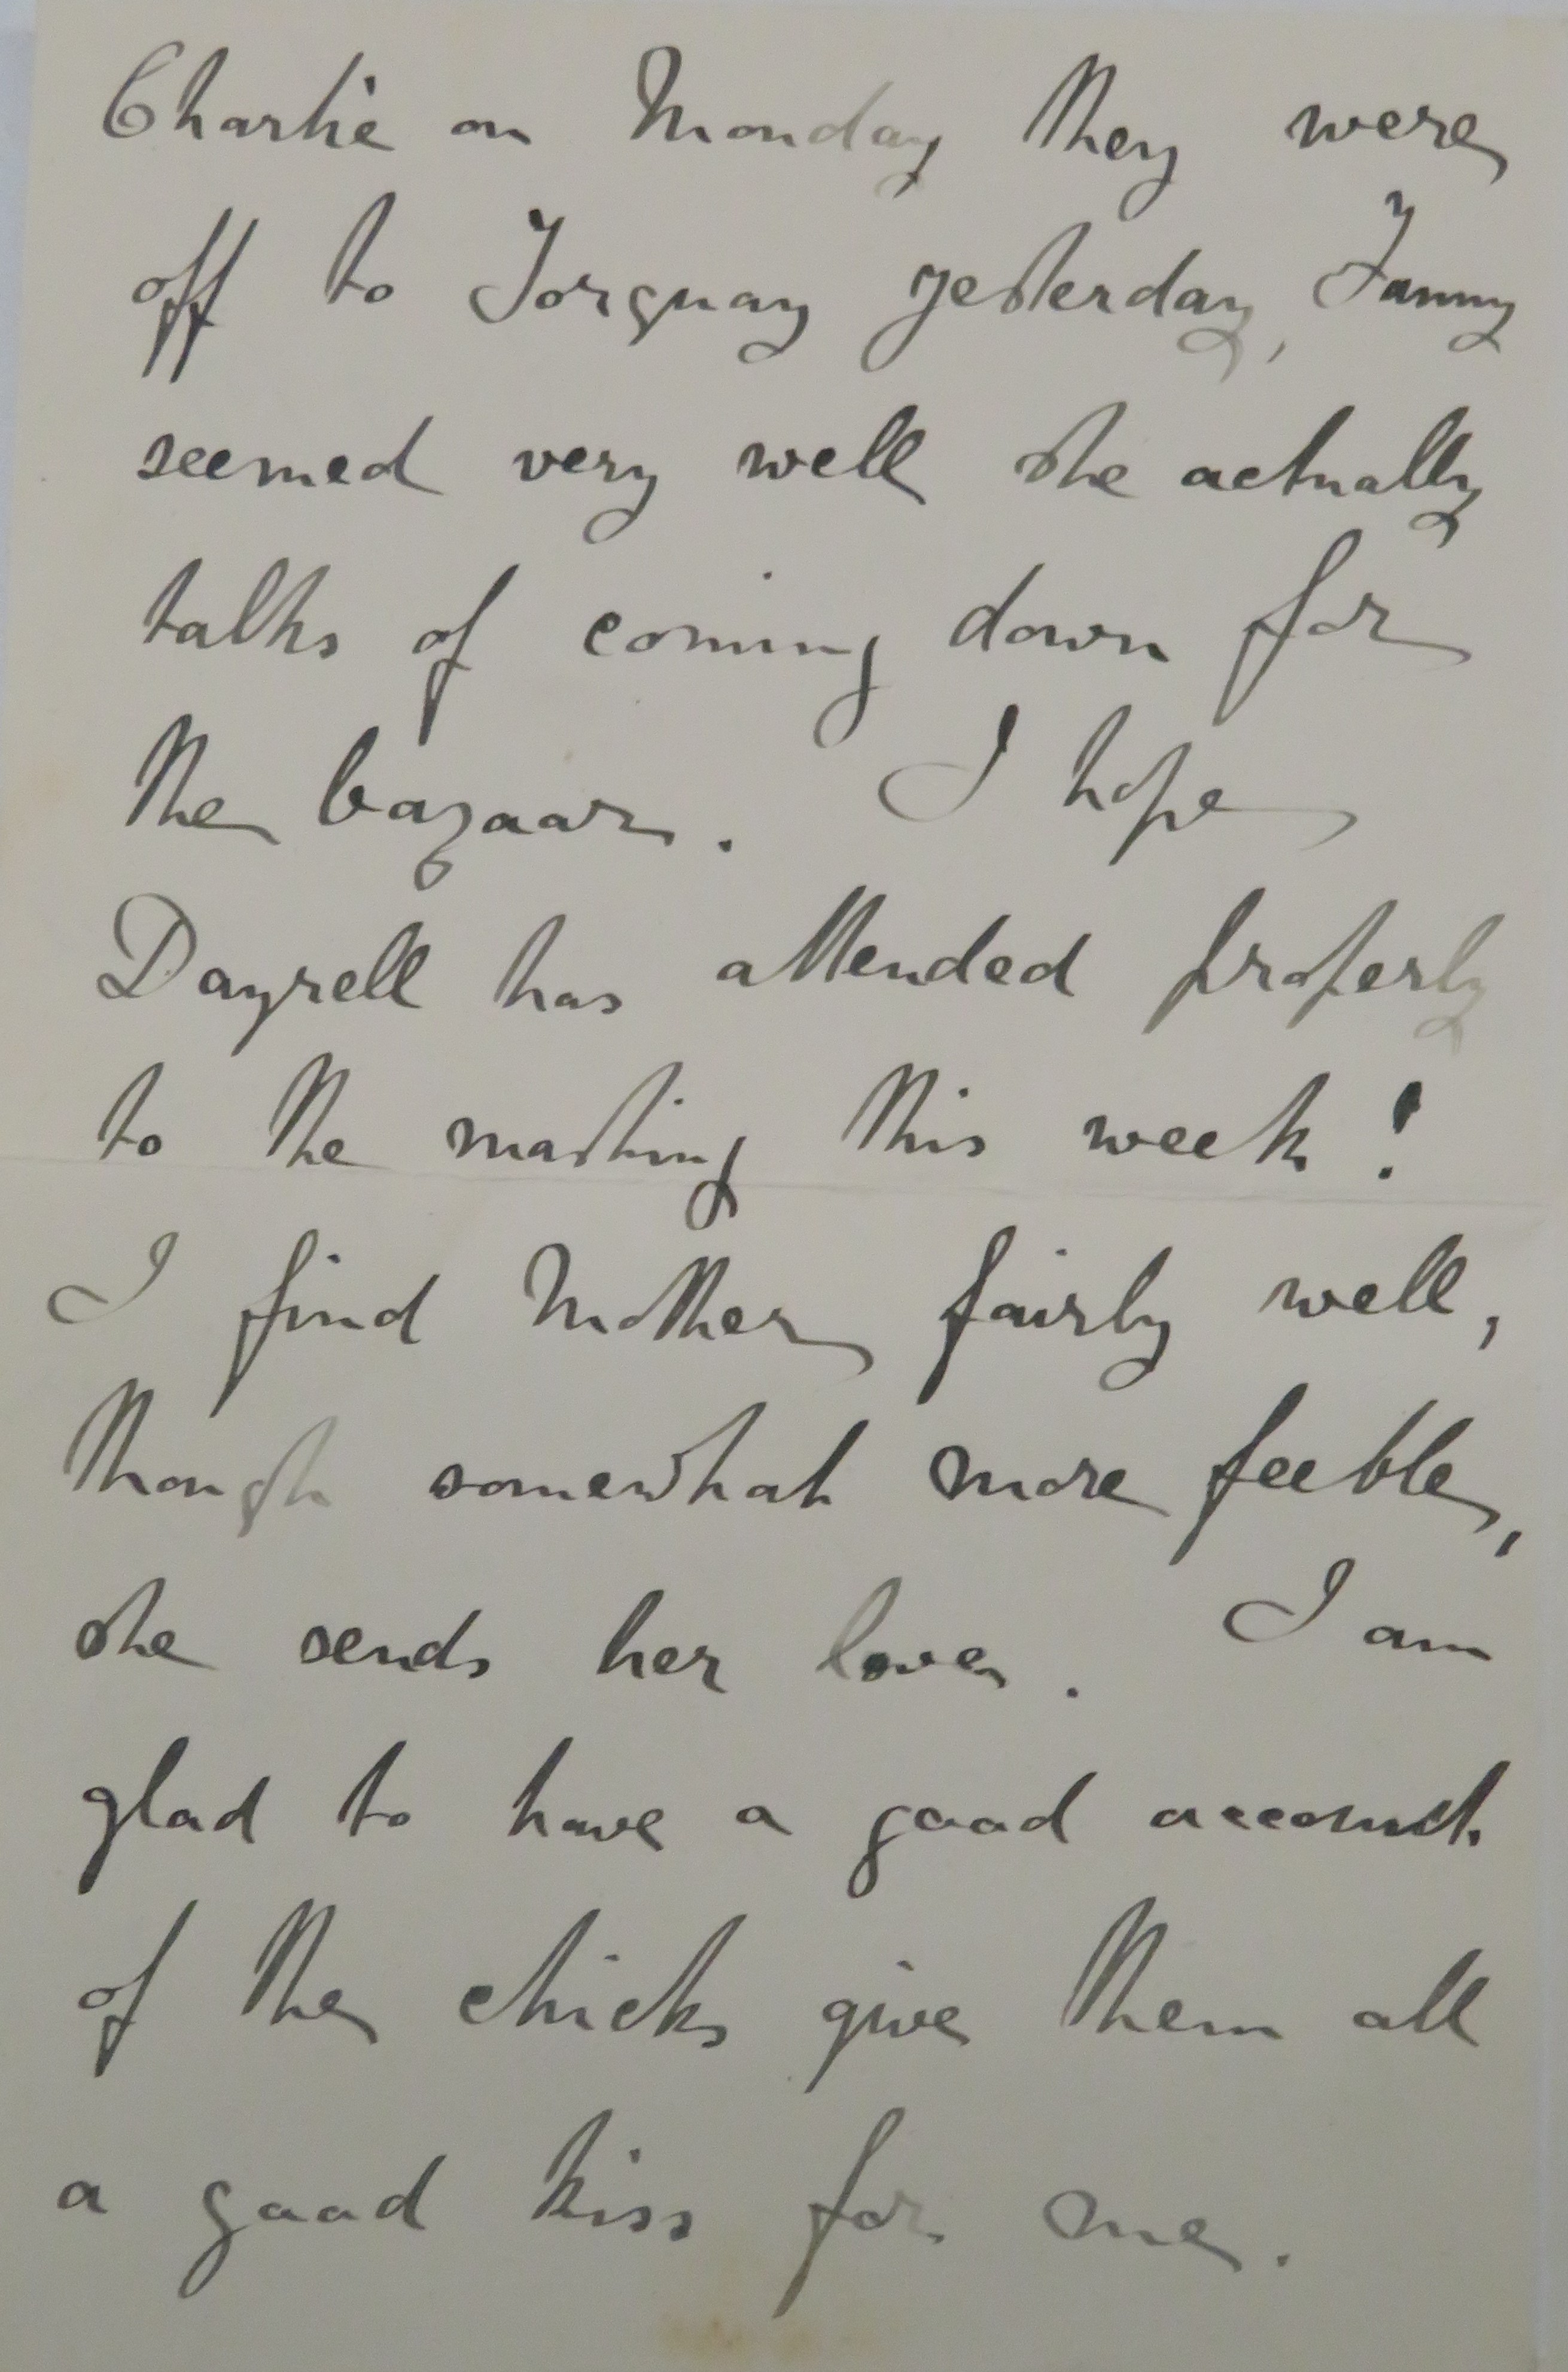 Charlie on Monday they were
off to Torquay yesterday, Fanny
seemed very well she actually
talks of coming down for
the bazaar. I hope
Dayrell has attended properly
to the mashing this week!
I find Mother fairly well,
though somewhat more feeble,
she sends her love. I am
glad to have a good account
of the chicks give them all
a good kiss for me.